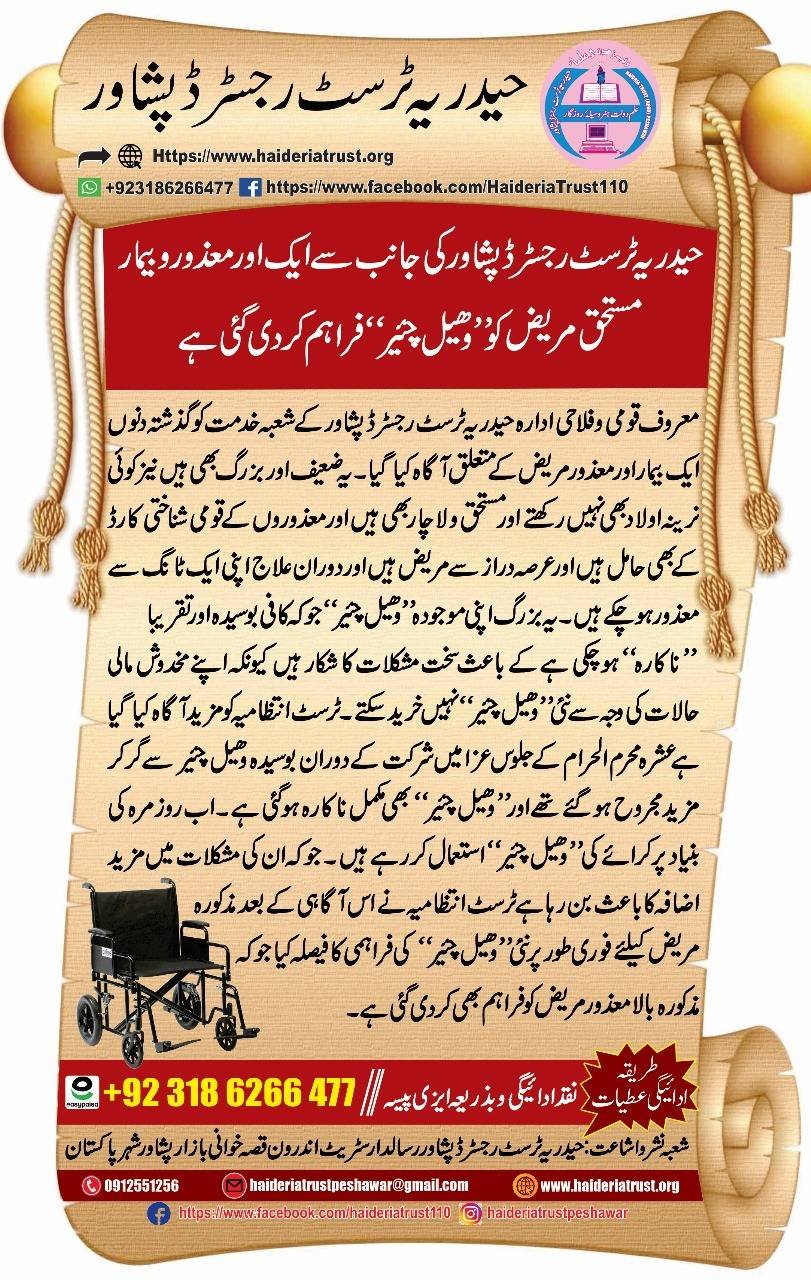 حیدریہ ٹرسٹ رجسٹرڈ پشاور
علم دولت ہنر وسیلۂ روزگار
Https://www.haideriatrust.org
+923186266477 https://www.facebook.com/HaideriaTrust110
حیدریہ ٹرسٹ رجسٹرڈ پشاور کی جانب سے ایک اور معذور و بیمار
مستحق مریض کو ’’وھیل چئیر‘‘ فراہم کردی گئی ہے
معروف قومی و فلاحی ادارہ حیدریہ ٹرسٹ رجسٹرڈ پشاور کے شعبہ خدمت کو گذشتہ دنوں
ایک بیمار اور معذور مریض کے متعلق آگاہ کیا گیا۔ یہ ضعیف اور بزرگ بھی ہیں نیز کوئی
نرینہ اولاد بھی نہیں رکھتے اور مستحق و لاچار بھی ہیں اور معذوروں کے قومی شناختی کارڈ
کے بھی حامل ہیں اور عرصہ دراز سے مریض ہیں اور دوران علاج اپنی ایک ٹانگ سے
معذور ہوچکے ہیں۔ یہ بزرگ اپنی موجودہ ’’وھیل چئیر‘‘ جو کہ کافی بوسیدہ اور تقریبا
’’ناکارہ‘‘ ہوچکی ہے کے باعث سخت مشکلات کا شکار ہیں کیونکہ اپنے مخدوش مالی
حالات کی وجہ سے نئی ’’وھیل چئیر‘‘ نہیں خرید سکتے۔ ٹرسٹ انتظامیہ کو مزید آگاہ کیا گیا
ہے عشرہ محرم الحرام کے جلوس عزا میں شرکت کے دوران بوسیدہ وھیل چئیر سے گر کر
مزید مجروح ہوگئے تھے اور ’’وھیل چئیر‘‘ بھی مکمل ناکارہ ہوگئی ہے۔ اب روزمرہ کی
بنیاد پر کرائے کی ’’وھیل چئیر‘‘ استعمال کر رہے ہیں۔ جو کہ ان کی مشکلات میں مزید
اضافہ کا باعث بن رہا ہے ٹرسٹ انتظامیہ نے اس آگاہی کے بعد مذکورہ
مریض کیلئے فوری طور پر نئی ’’وھیل چئیر‘‘ کی فراہمی کا فیصلہ کیا جو کہ
مذکورہ بالا معذور مریض کو فراہم بھی کردی گئی ہے۔
طریقہ
ادائیگی عطیات
نقد ادائیگی و بذریعہ ایزی پیسہ // +92 318 6266 477
easypaisa
شعبہ نشر و اشاعت: حیدریہ ٹرسٹ رجسٹرڈ پشاور رسالدار سٹریٹ اندرون قصہ خوانی بازار پشاور شہر پاکستان
0912551256 haideriatrustpeshawar@gmail.com www.haideriatrust.org
https://www.facebook.com/haideriatrust110 haideriatrustpeshawar